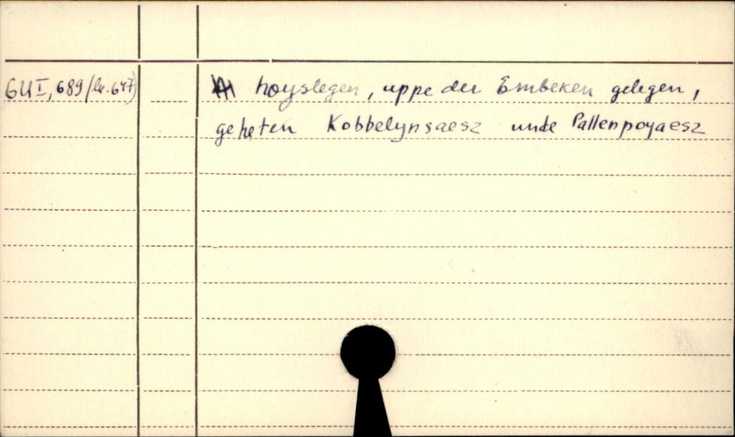 GU I, 689 (nr. 647) hoyslegen, uppe der Embeken gelegen,
geheten Kobbelynsaesz unde Pallenpoyaesz